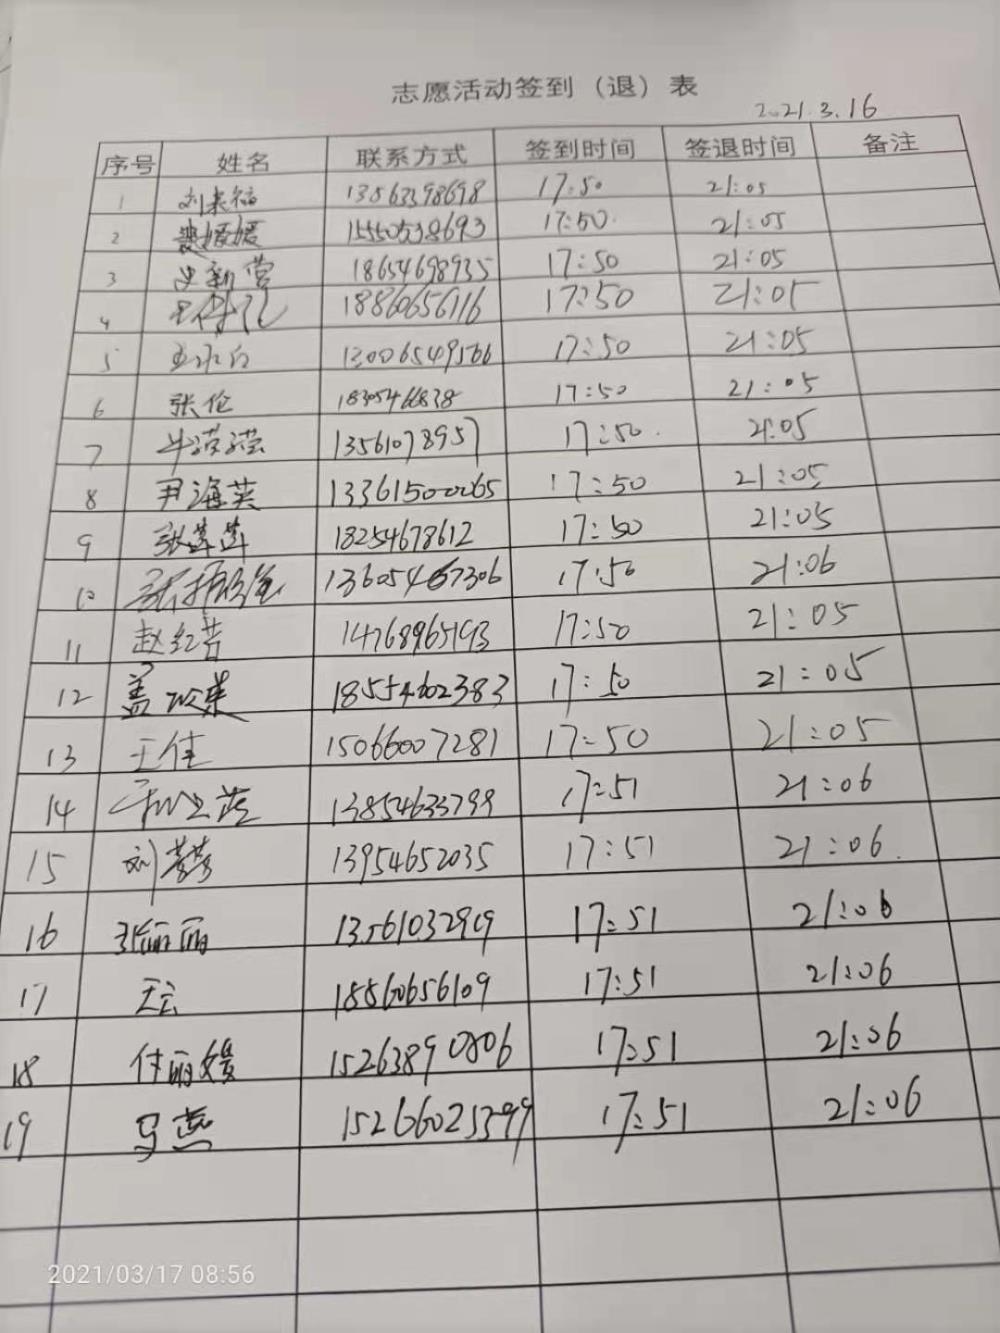 志愿活动签到（退）表
2021.3.16
序号 姓名 联系方式 签到时间 签退时间 备注
1 13563398698 17:50 21:05
2 15550538693 17:50 21:05
3 18654698935 17:50 21:05
4 18860656116 17:50 21:05
5 13006549566 17:50 21:05
6 张伦 17:50 21:05
7 13561078957 17:50 21:05
8 尹海英 13361500065 17:50 21:05
9 张莲莲 18254678612 17:50 21:05
10 13605467306 17:50 21:06
11 赵红芳 14768965193 17:50 21:05
12 18554602383 17:50 21:05
13 王佳 15066007281 17:50 21:05
14 13854633799 17:51 21:06
15 13954652035 17:51 21:06
16 张丽丽 13561032919 17:51 21:06
17 18860656109 17:51 21:06
18 付丽媛 15263890806 17:51 21:06
19 马燕 15266025399 17:51 21:06
2021/03/17 08:56